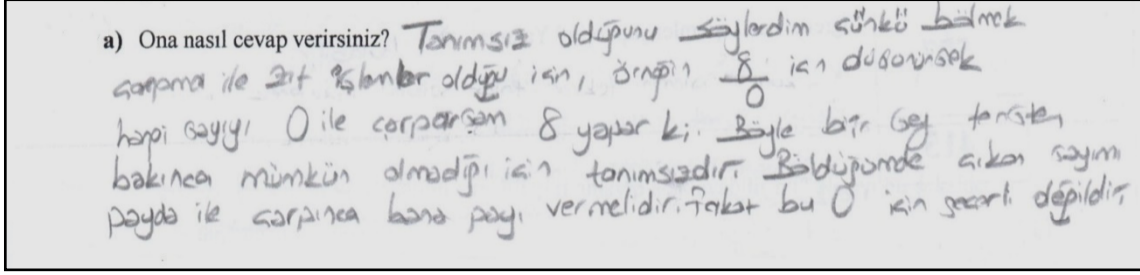 a) Ona nasıl cevap verirsiniz? Tanımsız olduğunu söylerdim çünkü bölmek
çarpma ile zıt işlemler olduğu için, örneğin 8/0 için düşünürsek
hangi sayıyı 0 ile çarparsam 8 yapar ki. Böyle bir şey tersten
bakınca mümkün olmadığı için tanımsızdır. Böldüğümde çıkan sayımı
payda ile çarpınca bana payı vermelidir. Fakat bu 0 için geçerli değildir.